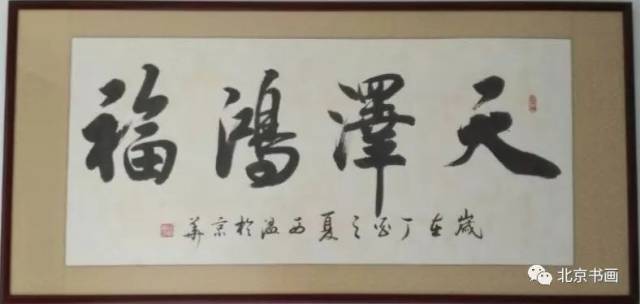 天澤鴻福
歲在丁酉之夏西溫於京華
北京书画